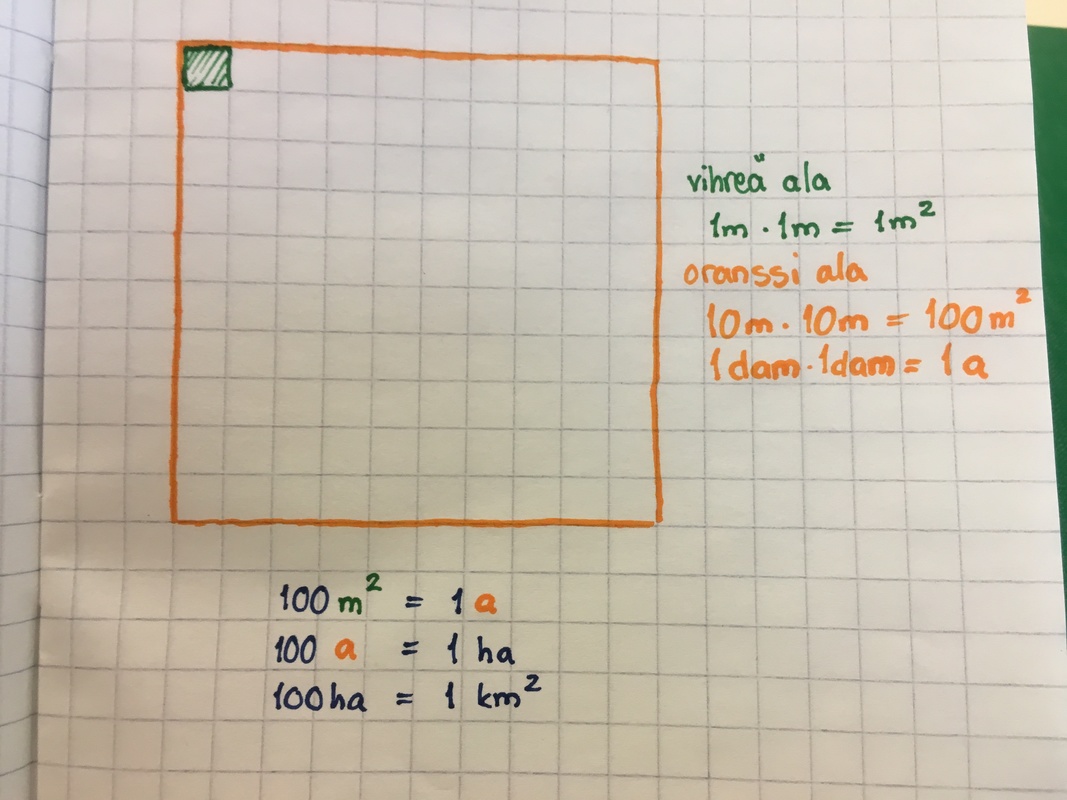 vihreä ala
1m · 1m = 1m²
oranssi ala
10m · 10m = 100m²
1dam · 1dam = 1a
100 m² = 1 a
100 a = 1 ha
100ha = 1 km²